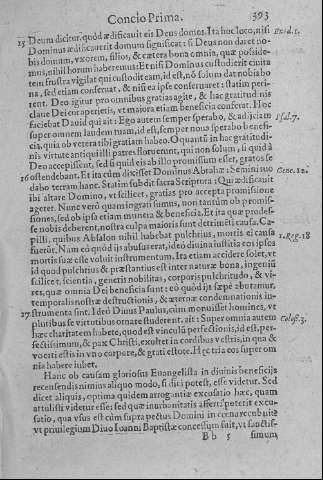 Concio Prima. 393
15 Deum dicitur, quòd ædificauit eis Deus domos. Ita hoc loco, nisi Exod.1.
Dominus ædificauerit domum significat: si Deus non daret no-
bis domum, vxorem, filios, & cætera bona omnia, quæ posside-
mus, nihil horum haberemus: Et nisi Dominus custodierit ciuita
tem frustra vigilat qui custodit eam, id est, nõ solum dat nobis bo
na, sed etiam conseruat, & nisi ea ipse conseruaret: statim peri-
rent. Deo igitur pro omnibus gratias agite, & hac gratitudinis
claue Dei cor aperietis, vt maiora etiam beneficia conferat. Hoc
faciebat Dauid qui ait: Ego autem semper sperabo, & adijciam Psal.7.
super omnem laudem tuam, id est, semper noua sperabo benefi-
cia, quia ob vetera tibi gratiam habeo. O quantũ in hac gratitudi-
nis virtute antiqui illi patres floruerunt, qui non solum, si quid à
Deo accepissent, sed si quid eis ab illo promissum esset, gratos se
16 ostendebant. Et ita cùm dixisset Dominus Abrahæ: Semini tuo Gene.12.
dabo terram hanc. Statim subdit sacra Scriptura: Qui ædificauit
ibi altare Domino, vt scilicet, gratias pro accepta promissione
ageret. Nunc verò quam ingrati sumus, non tantùm ob promis-
siones, sed ob ipsa etiam munera & beneficia. Et ita quæ prodes-
se nobis deberent, nostra culpa maioris sunt detrimẽti causa. Ca-
pilli, quibus Absalon nihil habebat pulchrius, mortis ei causa 2.Reg.18
fuerũt. Nam eò quòd ijs abusus erat, ideò diuina iustitia eos ipsos
mortis suæ esse voluit instrumentum. Ita etiam accidere solet, vt
id quod pulchrius & præstantius est inter naturæ bona, ingenij
scilicet, scientia, generis nobilitas, corporis pulchritudo, & vi-
res, quæ omnia Dei beneficia sunt: eò quòd ijs sæpè abutamur,
temporalis nostræ destructionis, & æternæ condemnationis in-
17 strumenta sint. Ideò Diuus Paulus, cùm monuisset homines, vt
pluribus se virtutibus ornare studerent, ait: Super omnia autem Colos.3.
hæc charitatem habete, quod est vinculũ perfectionis, id est, per-
fectissimum, & pax Christi, exultet in cordibus vestris, in qua &
vocati estis in vno corpore, & grati estote. Hæc tria eos super om
nia habere iubet.
Hanc ob causam gloriosus Euangelista in diuinis beneficijs
recensendis nimius aliquo modo, si dici potest, esse videtur. Sed
dicet aliquis, optima quidem arrogantiæ excusatio hæc, quam
attulisti videtur esse: sed quæ inurbanitatis afferri poterit excu-
satio, qua vsus est cùm supra pectus Domini in cœna recubuit
vt priuilegium Diuo Ioanni Baptistæ concessum fuit, vt sanctis-
B b 5 simum,